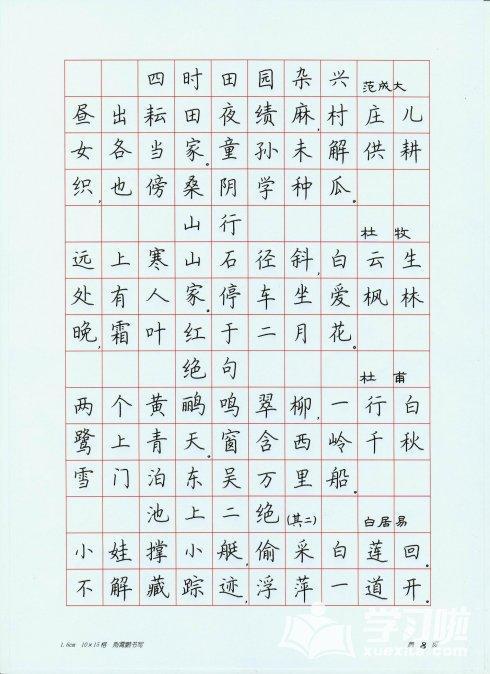 四时田园杂兴 范成大
昼出耘田夜绩麻,村庄儿
女各当家。童孙未解供耕
织,也傍桑阴学种瓜。
山行 杜牧
远上寒山石径斜,白云生
处有人家。停车坐爱枫林
晚,霜叶红于二月花。
绝句 杜甫
两个黄鹂鸣翠柳,一行白
鹭上青天。窗含西岭千秋
雪门泊东吴万里船。
池上二绝(其二) 白居易
小娃撑小艇,偷采白莲回。
不解藏踪迹,浮萍一道开。
1.6cm 10×15格 书写
第 8 页
学习啦
xuexila.com